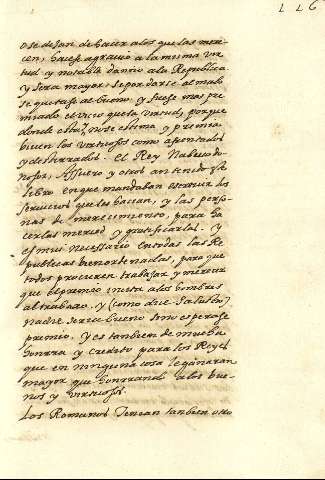 116
o se dejan de hacer a los que las mere-
cen, hacese agravio a la misma vir-
tud y notable danno a la Republica
y sera mayor, si por darse al malo
se quitase al bueno, y fuese mas pre-
miado el vicio que la virtud, porque
donde esta, no se estima y premia
viven los virtuosos como afrentados
y desterrados. el Rey Nabucodo-
nosor, Assuero y otros an tenido
libro en que mandaban escrivir los
servicios que les hacian, y las perso-
nas de merecimiento, para ha-
cerlas merced y gratificarlas. y
es mui necessario en todas las Re-
publicas bien ordenadas, para que
todos procuren trabajar y merecer
que el premio incita a los hombres
al trabajo. y (como dice Salustio)
nadie seria bueno sino esperase
premio. y es tambien de mucha
honrra y credito para los Reyes
que en ninguna cosa le ganaran
mayor que honrrando a los bue-
nos y virtuosos.
Los Romanos tenian tanbien otro